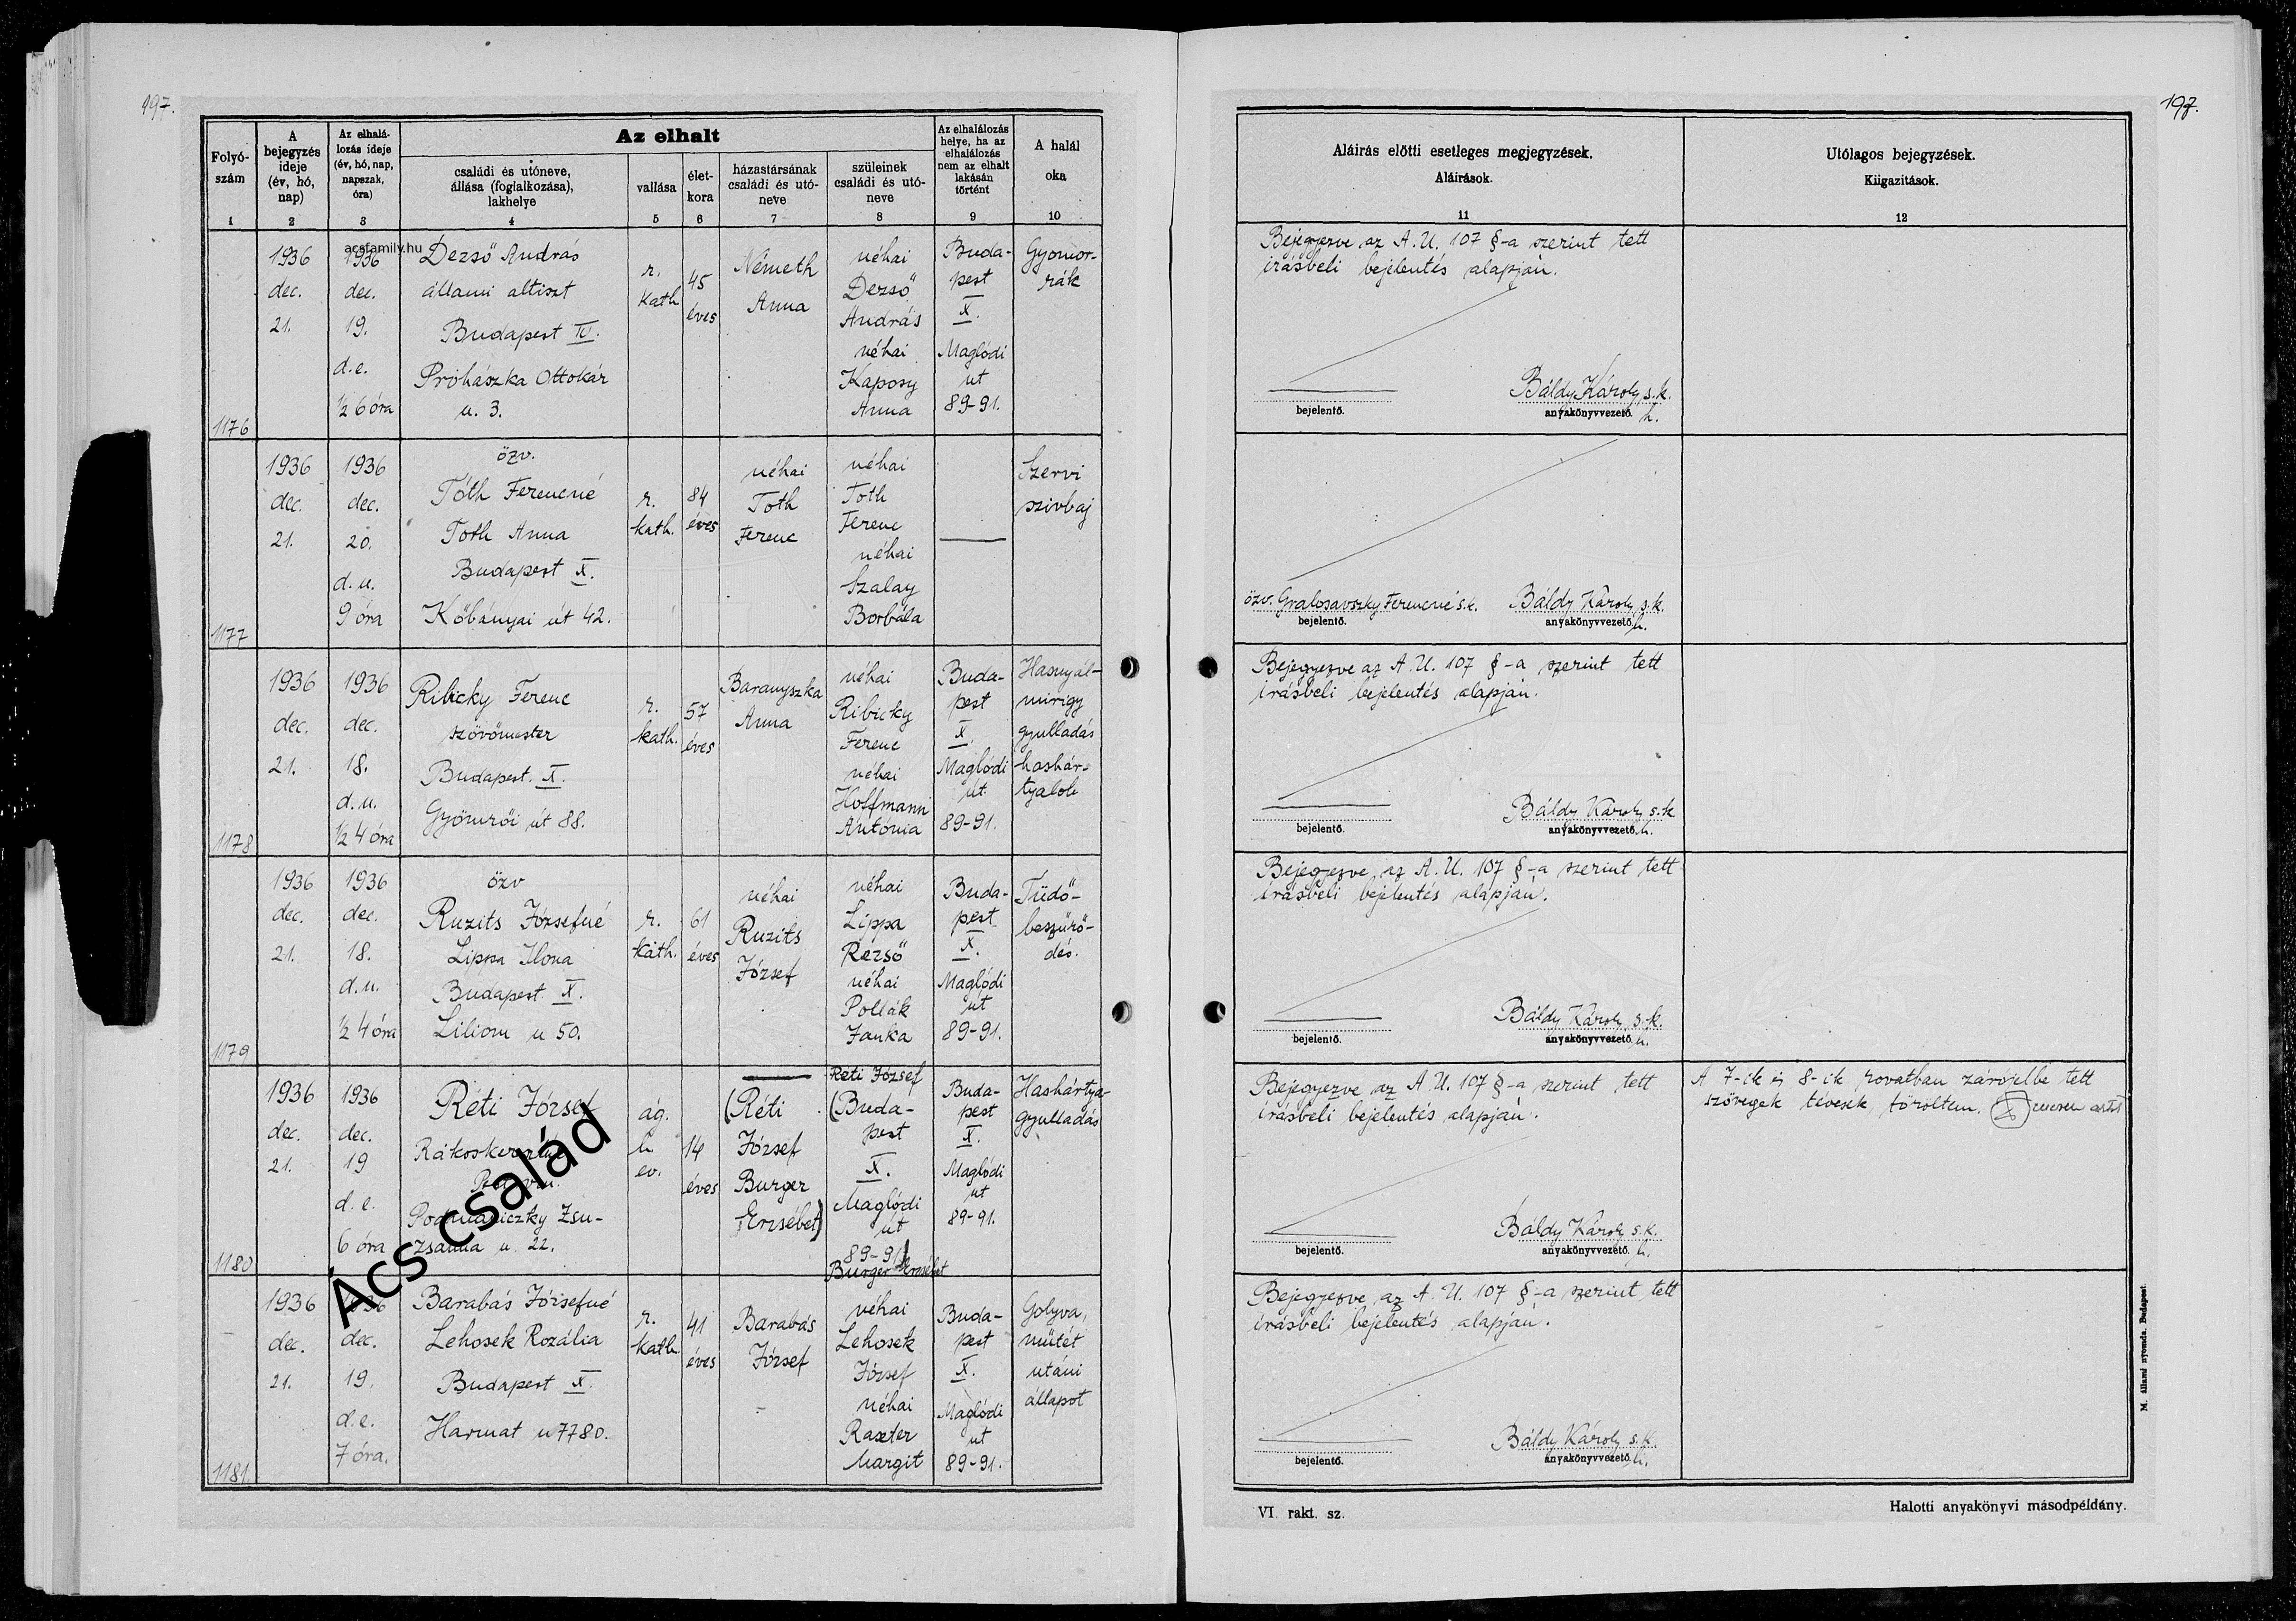 197.
197.
Folyó-
szám
1
A
bejegyzés
ideje
(év, hó,
nap)
2
Az elhalá-
lozás ideje
(év, hó, nap,
napszak,
óra)
3
Az elhalt
családi és utóneve,
állása (foglalkozása),
lakhelye
4
vallása
5
élet-
kora
6
házastársának
családi és utó-
neve
7
szüleinek
családi és utó-
neve
8
Az elhalálozás
helye, ha az
elhalálozás
nem az elhalt
lakásán
történt
9
A halál
oka
10
Aláírás előtti esetleges megjegyzések.
Aláírások.
11
Utólagos bejegyzések.
Kiigazítások.
12
acsfamily.hu
1176
1936
dec.
21.
1936
dec.
19.
d.e.
½ 6 óra
Dezső András
állami altiszt
Budapest IV.
Prohászka Ottokár
u. 3.
r.
kath
45
éves
Németh
Anna
néhai
Dezső
András
néhai
Kaposy
Anna
Buda-
pest
X.
Maglódi
ut
89-91.
Gyomor-
rák
Bejegyezve az A. U. 107 §-a szerint tett
irásbeli bejelentés alapján.
Báldy Károly s.k.
bejelentő.
anyakönyvvezető h.
1177
1936
dec.
21.
1936
dec.
20.
d.u.
9 óra
özv.
Tóth Ferencné
Toth Anna
Budapest X.
Kőbányai út 42.
r.
kath.
84
éves
néhai
Toth
Ferenc
néhai
Toth
Ferenc
néhai
Szalay
Borbála
Szervi
szivbaj
özv. Gralosavszky Ferencné s.k.
Báldy Károly s.k.
bejelentő.
anyakönyvvezető h.
1178
1936
dec.
21.
1936
dec.
18.
d.u.
½ 4 óra
Ribicky Ferenc
szövőmester
Budapest. X.
Gyömrői út 88.
r.
kath.
57
éves
Baranyszka
Anna
néhai
Ribicky
Ferenc
néhai
Hoffmann
Antónia
Buda-
pest
X.
Maglódi
út
89-91.
Hasnyál-
mirigy
gyulladás
hashár-
tyalob
Bejegyezve az A. U. 107 §-a szerint tett
irásbeli bejelentés alapján.
Báldy Károly s.k
bejelentő.
anyakönyvvezető h.
1179
1936
dec.
21.
1936
dec.
18.
d.u.
½ 4 óra
özv
Ruzits Józsefné
Lippa Ilona
Budapest X.
Liliom u 50.
r.
kath.
61
éves
néhai
Ruzits
József
néhai
Lippa
Rezső
néhai
Pollák
Janka
Buda-
pest
X.
Maglódi
út
89-91.
Tüdő-
beszürő-
dés.
Bejegyezve az A. U. 107 §-a szerint tett
irásbeli bejelentés alapján.
Báldy Károly s.k.
bejelentő.
anyakönyvvezető h.
1180
1936
dec.
21.
1936
dec.
19
d.e.
6 óra
Réti József
Podmaniczky Zsu-
zsanna u. 22.
ág.
h.
ev.
14
éves
(Réti
József
Burger
Erzsébet)
Réti József
(Buda-
pest
X.
Maglódi
út
89-91)
Burger Erzsébet
Buda-
pest
X.
Maglódi
ut
89-91.
Hashártya-
gyulladás
Bejegyezve az A. U. 107 §-a szerint tett
irásbeli bejelentés alapján.
Báldy Károly s.k.
bejelentő.
anyakönyvvezető h.
A 7-ik és 8-ik rovatban zárójelbe tett
szövegek tévesek, töröltem.
Ács család
1181.
1936
dec.
21.
1936
dec.
19.
d.e.
7 óra.
Barabás Józsefné
Lehosek Rozália
Budapest X.
Harmat u 7780.
r.
kath.
41
éves
Barabás
József
néhai
Lehosek
József
néhai
Raszter
Margit
Buda-
pest
X.
Maglódi
ut
89-91.
Golyva,
műtét
utáni
állapot
Bejegyezve az A. U. 107 §-a szerint tett
irásbeli bejelentés alapján.
Báldy Károly s.k.
bejelentő.
anyakönyvvezető h.
VI. rakt. sz.
Halotti anyakönyvi másodpéldány.
M. állami nyomda. Budapest.